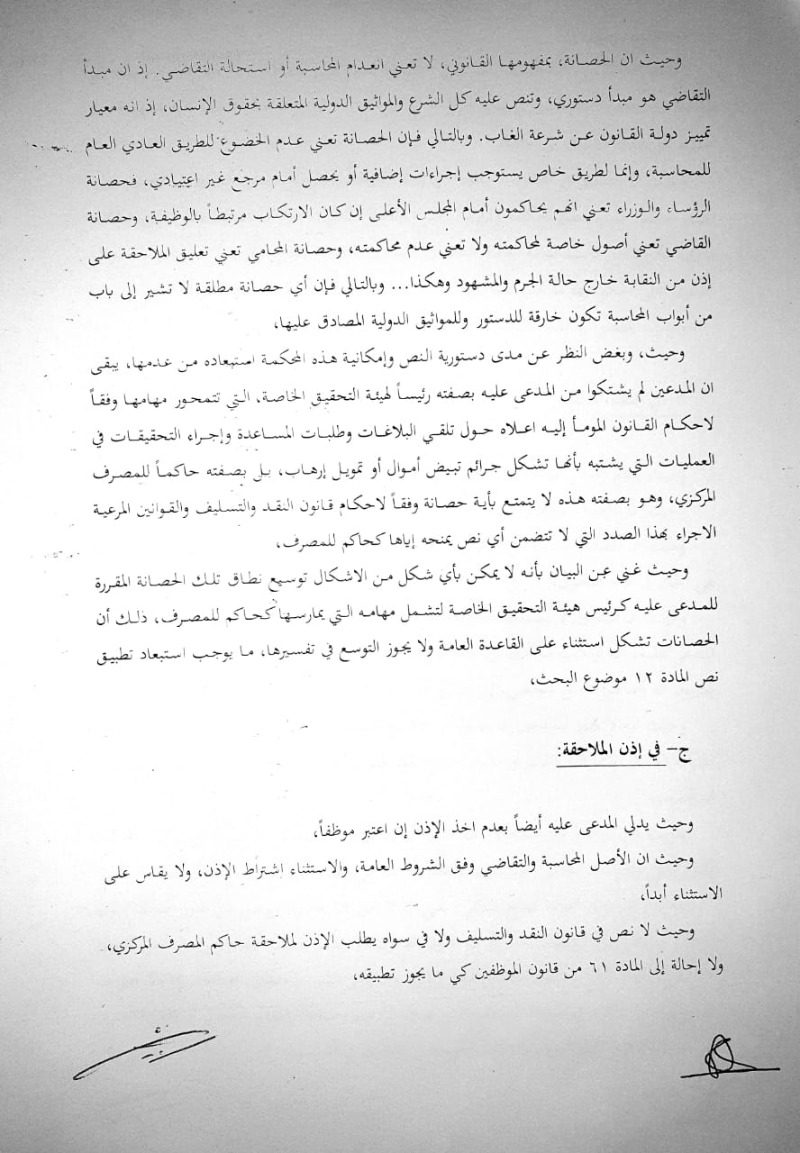 وحيث ان الحصانة، بمفهومها القانوني، لا تعني انعدام المحاسبة أو استحالة التقاضي. إذ ان مبدأ
التقاضي هو مبدأ دستوري، وتنص عليه كل الشرع والمواثيق الدولية المتعلقة بحقوق الإنسان، إذ انه معيار
تمييز دولة القانون عن شرعة الغاب. وبالتالي فإن الحصانة تعني عدم الخضوع للطريق العادي العام
للمحاسبة، وإنما لطريق خاص يستوجب إجراءات إضافية أو يحصل أمام مرجع غير اعتيادي، فحصانة
الرؤساء والوزراء تعني انهم يحاكمون أمام المجلس الأعلى إن كان الارتكاب مرتبطاً بالوظيفة، وحصانة
القاضي تعني أصول خاصة لمحاكمته ولا تعني عدم محاكمته، وحصانة المحامي تعني تعليق الملاحقة على
إذن من النقابة خارج حالة الجرم والمشهود وهكذا... وبالتالي فإن أي حصانة مطلقة لا تشير إلى باب
من أبواب المحاسبة تكون خارقة للدستور وللمواثيق الدولية المصادق عليها،
وحيث، وبغض النظر عن مدى دستورية النص وإمكانية هذه المحكمة استبعاده من عدمها، يبقى
ان المدعين لم يشتكوا من المدعى عليه بصفته رئيساً لهيئة التحقيق الخاصة، التي تتمحور مهامها وفقاً
لاحكام القانون المومأ إليه اعلاه حول تلقي البلاغات وطلبات المساعدة وإجراء التحقيقات في
العمليات التي يشتبه بأنها تشكل جرائم تبيض أموال أو تمويل إرهاب، بل بصفته حاكماً للمصرف
المركزي، وهو بصفته هذه لا يتمتع بأية حصانة وفقاً لاحكام قانون النقد والتسليف والقوانين المرعية
الاجراء بهذا الصدد التي لا تتضمن أي نص يمنحه إياها كحاكم للمصرف،
وحيث غني عن البيان بأنه لا يمكن بأي شكل من الاشكال توسيع نطاق تلك الحصانة المقررة
للمدعى عليه كرئيس هيئة التحقيق الخاصة لتشمل مهامه التي يمارسها كحاكم للمصرف، ذلك أن
الحصانات تشكل استثناء على القاعدة العامة ولا يجوز التوسع في تفسيرها، ما يوجب استبعاد تطبيق
نص المادة ١٢ موضوع البحث،
ج- في إذن الملاحقة:
وحيث يدلي المدعى عليه أيضاً بعدم اخذ الإذن إن اعتبر موظفاً،
وحيث ان الأصل المحاسبة والتقاضي وفق الشروط العامة، والاستثناء اشتراط الإذن، ولا يقاس على
الاستثناء أبداً،
وحيث لا نص في قانون النقد والتسليف ولا في سواه يطلب الإذن لملاحقة حاكم المصرف المركزي،
ولا إحالة إلى المادة ٦١ من قانون الموظفين كي ما يجوز تطبيقه،